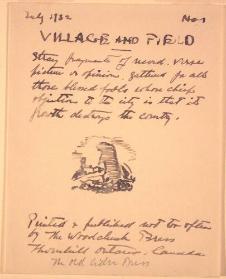 July 1932 No 1
VILLAGE AND FIELD
Stray fragments of record, verse
picture or opinion, gathered for all
those blessed fools whose chief
objection to the city is that its
growth destroys the country.
Printed & published not too often
by the Woodchuck Press
Thornhill Ontario. Canada
The Old Cider Press